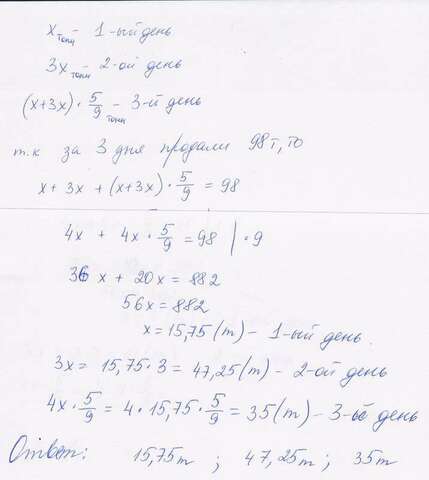 x тонн - 1-ый день
3x тонн - 2-ой день
(x+3x) · 5/9 тонн - 3-й день
т.к за 3 дня продали 98т, то
x + 3x + (x+3x) · 5/9 = 98
4x + 4x · 5/9 = 98 | · 9
36x + 20x = 882
56x = 882
x = 15,75 (т) - 1-ый день.
3x = 15,75 · 3 = 47,25 (т) - 2-ой день
4x · 5/9 = 4 · 15,75 · 5/9 = 35 (т) - 3-ый день
Ответ: 15,75т ; 47,25т ; 35т